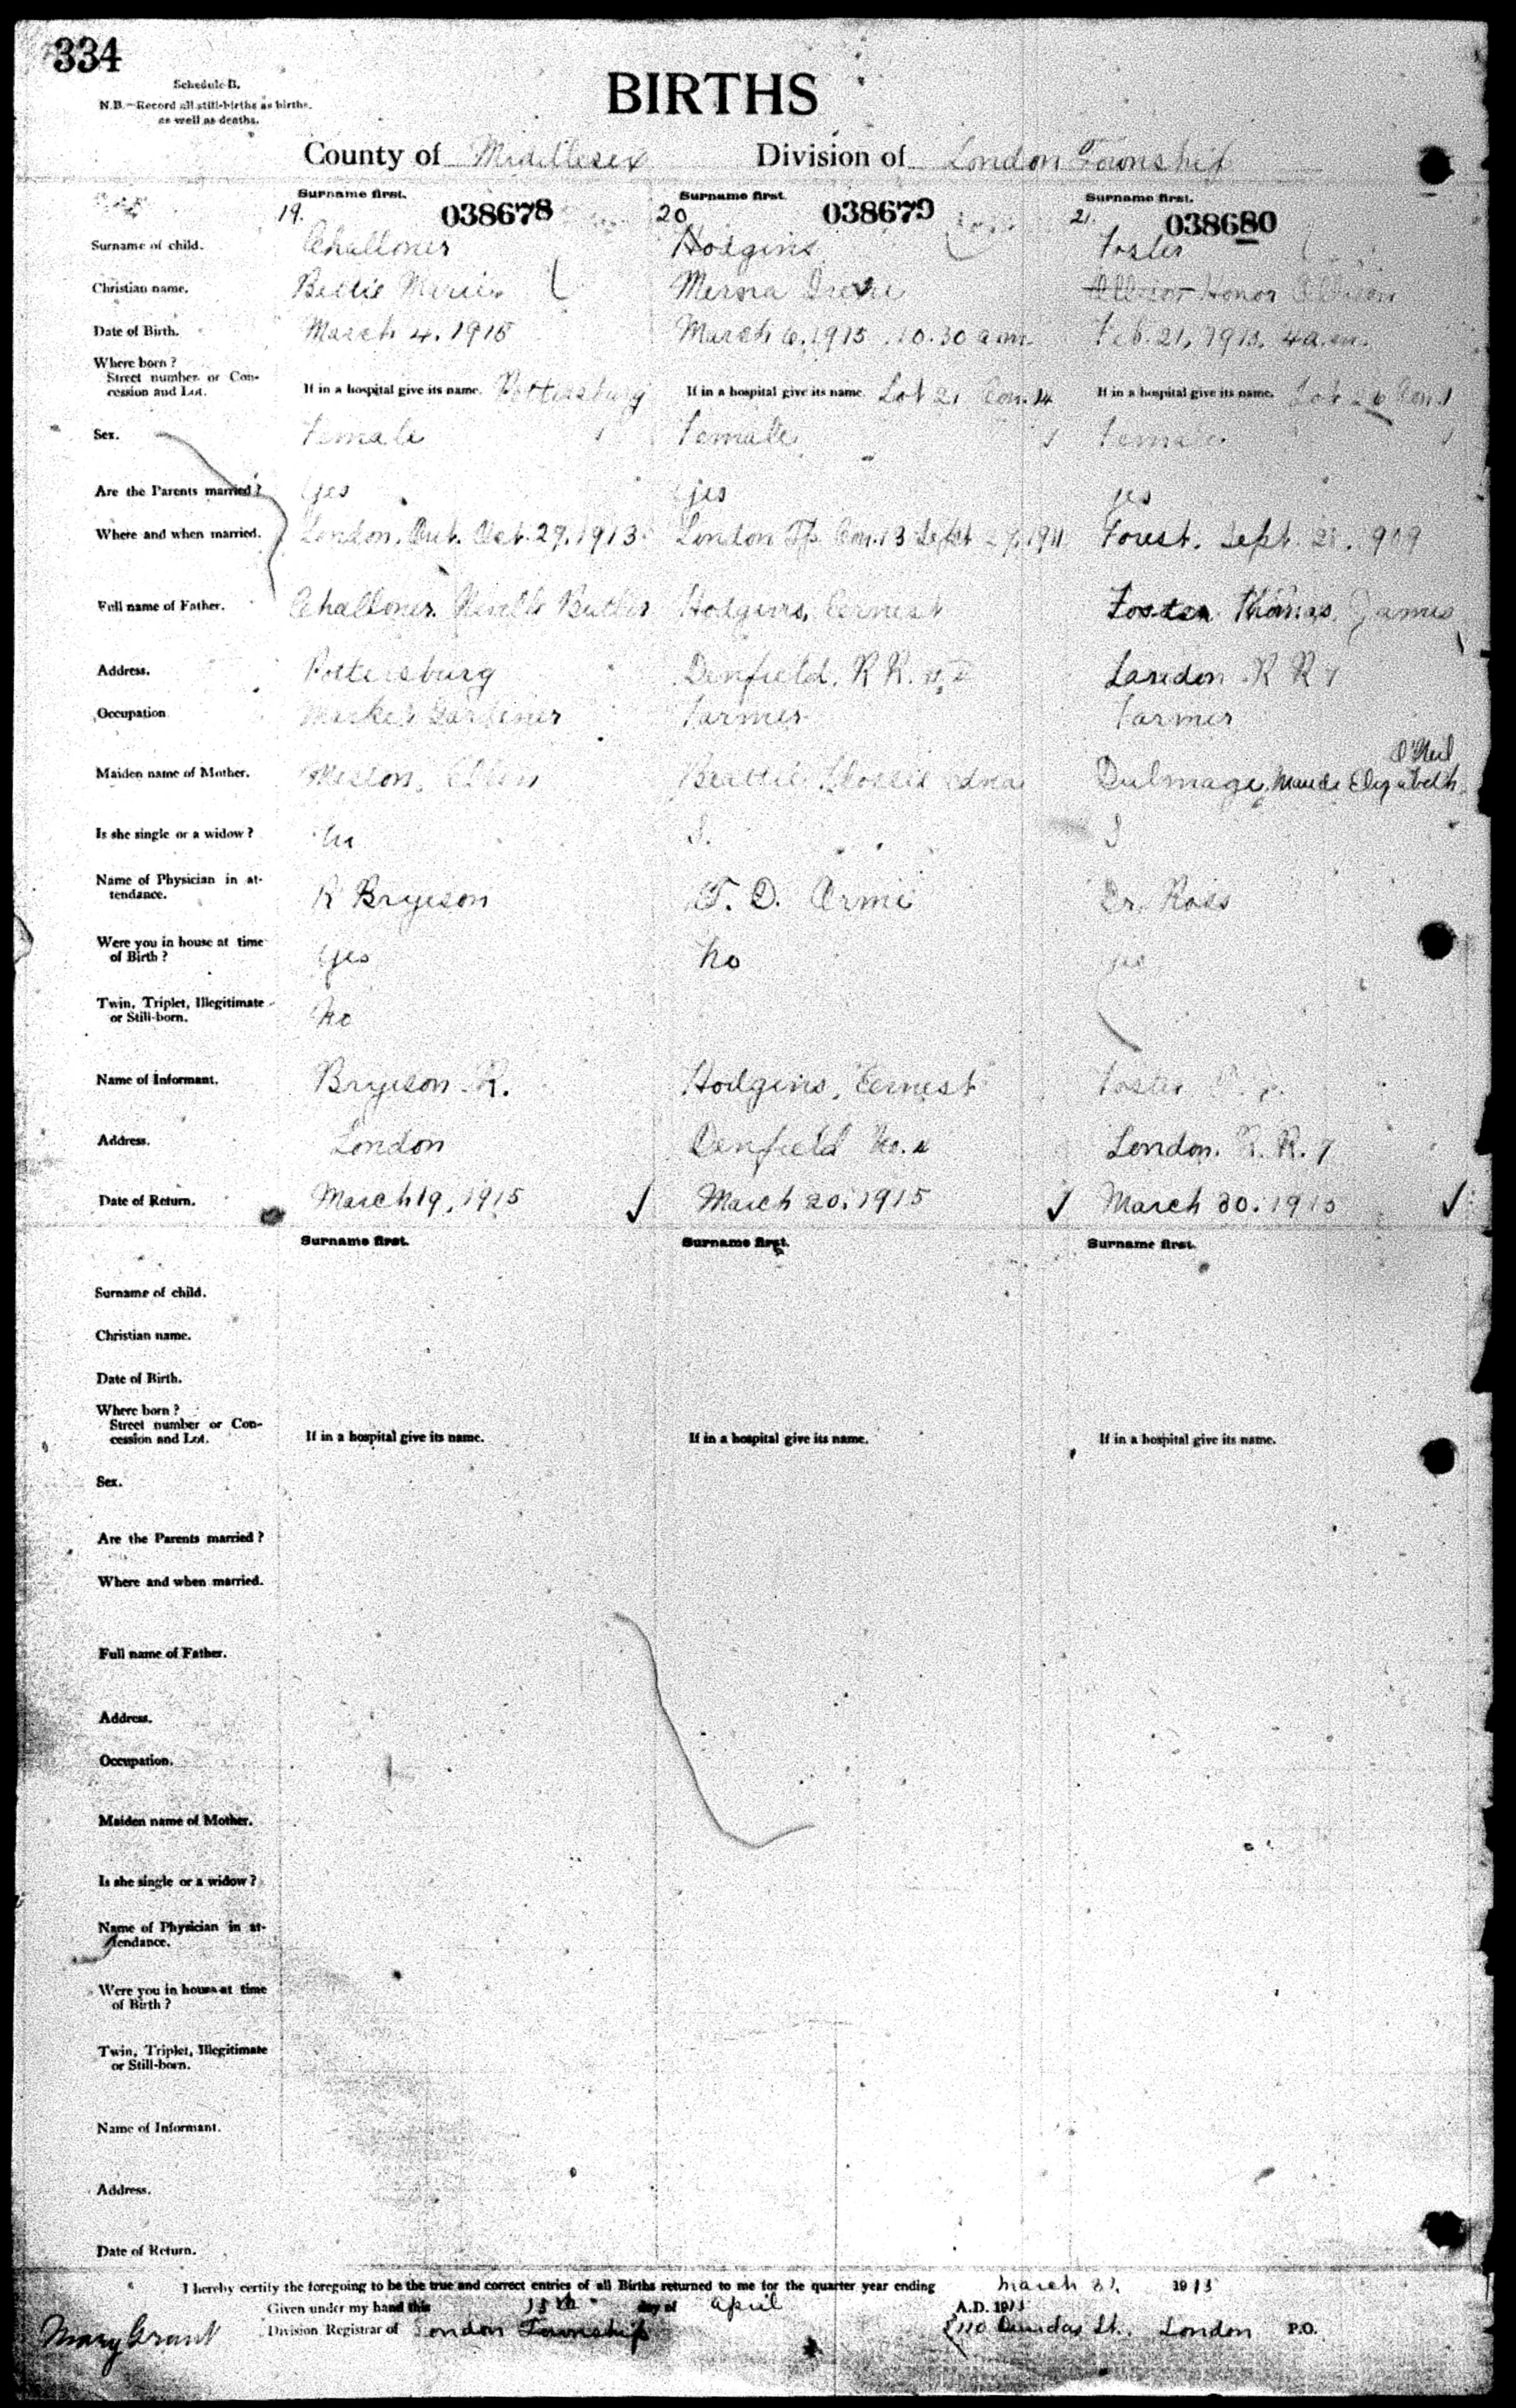 334
Schedule B.
N.B.—Record all still-births as births,
as well as deaths.
BIRTHS
County of Middlesex Division of London Township
Surname first. Surname first. Surname first.
19. 038678 20 038679 21. 038680
Surname of child. Challoner Hodgins Foster
Christian name. Bettie Merna Honor Allison
Date of Birth. March 4. 1915 March 6. 1915. 10.30 a.m. Feb. 21, 1915. 4 a.m.
Where born?
Street number or Con-
cession and Lot. If in a hospital give its name. Pottersburg If in a hospital give its name. Lot 21 Con. 14 If in a hospital give its name. Lot 26 Con. 1
Sex. Female Female Female
Are the Parents married? Yes Yes yes
Where and when married. London, Ont. Oct. 29, 1913 London Tp. Con. 13 Sept 27, 1911 Forest. Sept. 909
Full name of Father. Challoner Butler Hodgins, Ernest Foster Thomas James
Address. Pottersburg Denfield, R R. London R R 7
Occupation Market Gardener Farmer Farmer
O'Neil
Maiden name of Mother. Weston, Ellen Beattie Flossie Edna Dulmage, Maude Elizabeth
Is she single or a widow? S. S
Name of Physician in at-
tendance. R Bryeson T. D. Dr. Ross
Were you in house at time
of Birth? Yes No yes
Twin, Triplet, Illegitimate
or Still-born. No
Name of Informant. Bryeson R. Hodgins, Ernest Foster
Address. London Denfield No. London. R. R. 7
Date of Return. March 19, 1915 March 20. 1915 March 30. 1915
Surname first. Surname first. Surname first.
Surname of child.
Christian name.
Date of Birth.
Where born?
Street number or Con-
cession and Lot. If in a hospital give its name. If in a hospital give its name. If in a hospital give its name.
Sex.
Are the Parents married?
Where and when married.
Full name of Father.
Address.
Occupation.
Maiden name of Mother.
Is she single or a widow?
Name of Physician in at-
tendance.
Were you in house at time
of Birth?
Twin, Triplet, Illegitimate
or Still-born.
Name of Informant.
Address.
Date of Return.
I hereby certify the foregoing to be the true and correct entries of all Births returned to me for the quarter year ending March 31, 1915
Given under my hand this 15th day of April A.D. 1915
Mary Grant Division Registrar of London Township 110 Dundas St. London P.O.